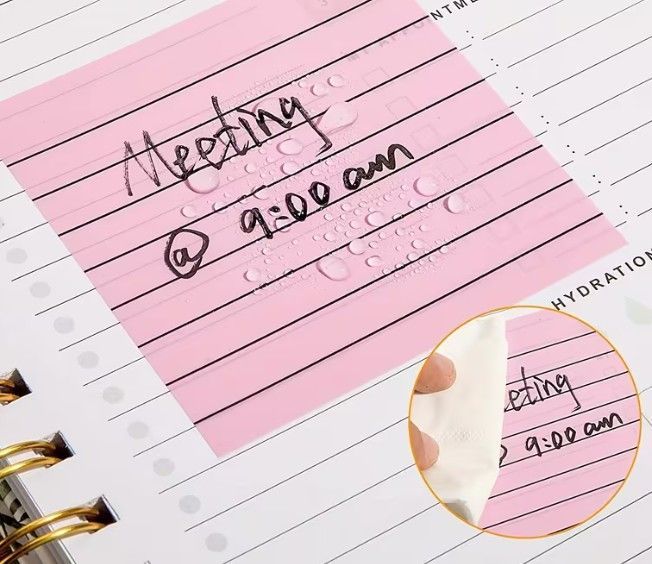 Meeting
@ 9:00 am
HYDRATION
eting
9:00 am